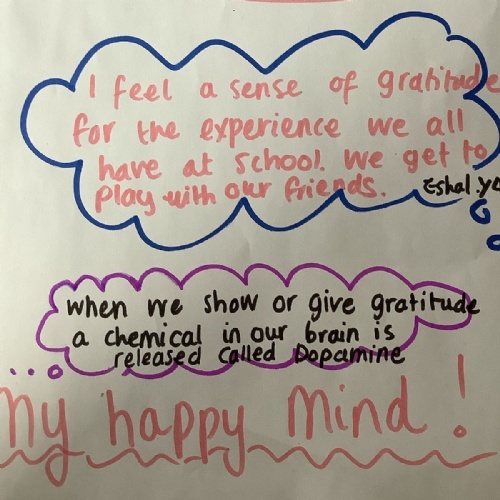 I feel a sense of gratitude
for the experience we all
have at school. We get to
play with our friends.
Eshal
when we show or give gratitude
a chemical in our brain is
released called Dopamine
my happy Mind!